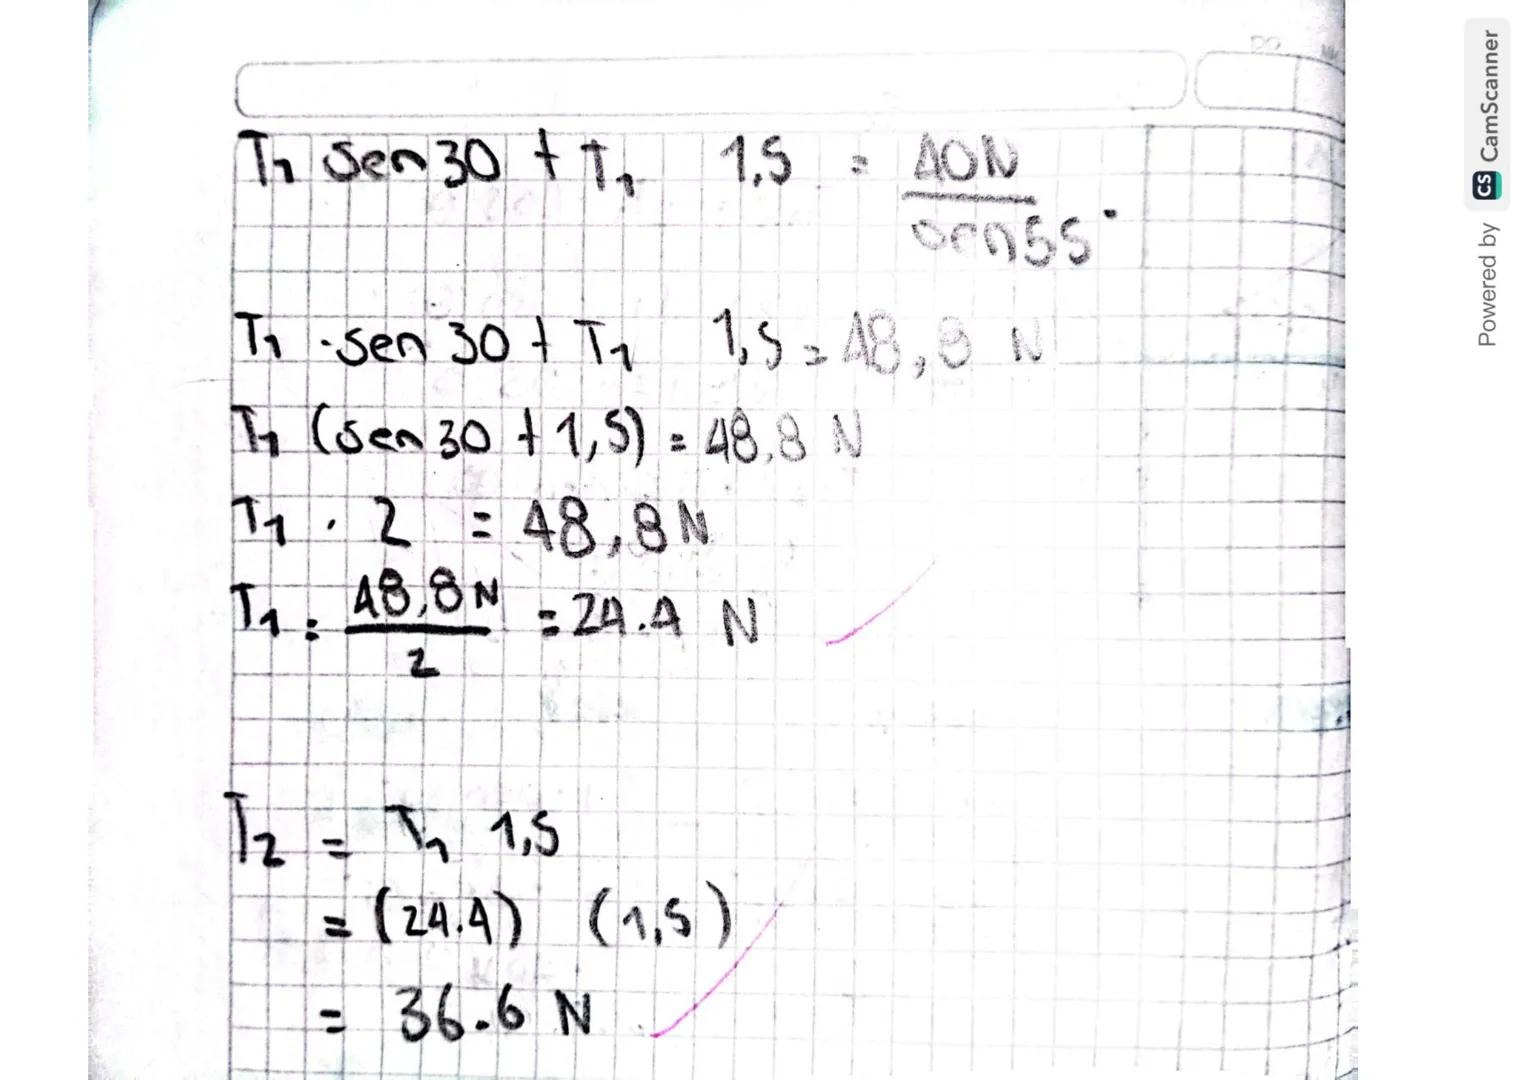 T1 sen 30 + T1 1,5 = 40N
sen 55°
T1 · sen 30 + T1 1,5 = 48,8 N
T1 (sen 30 + 1,5) = 48,8 N
T1 · 2 = 48,8 N
T1 = 48,8 N = 24.4 N
2
T2 = T1 1,5
= (24.4) (1,5)
= 36.6 N
Powered by CS CamScanner